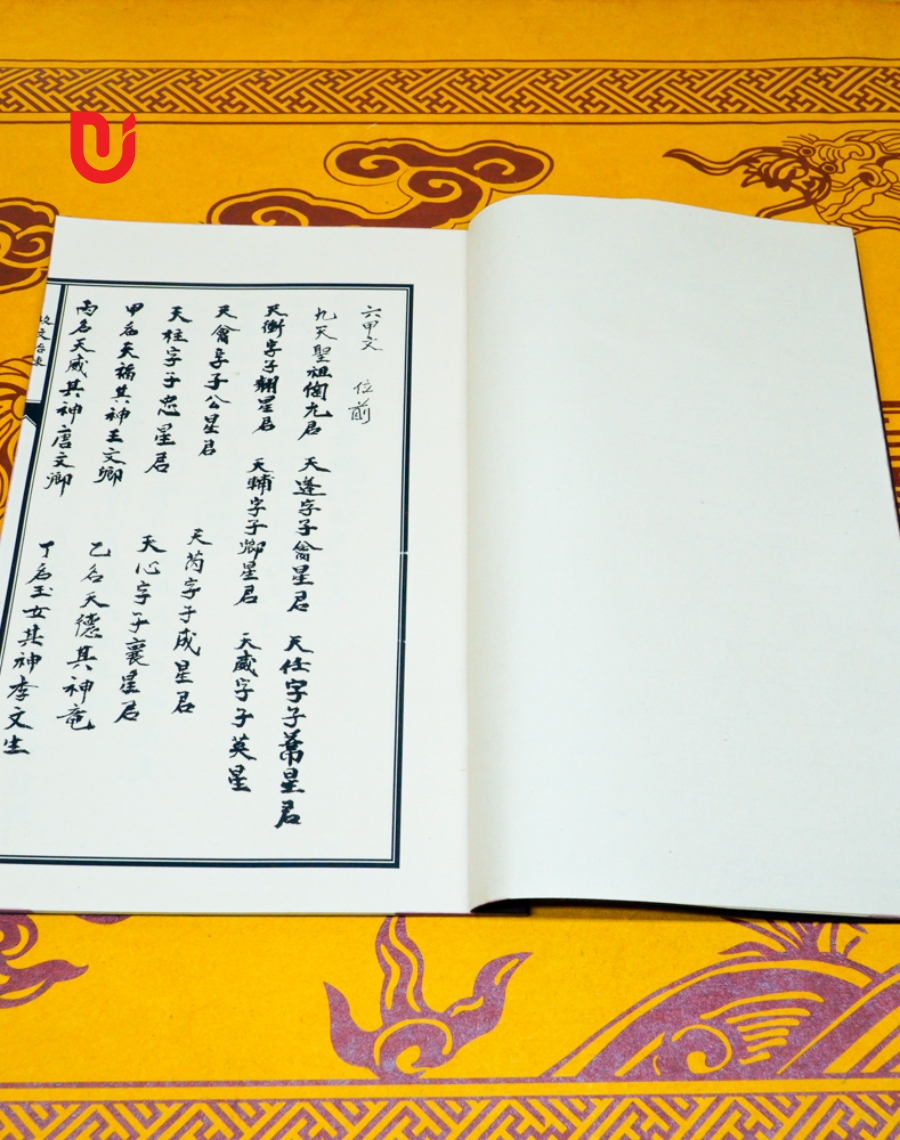 六甲文 位前
九天聖祖 九君 天蓬字子禽星君 天任字子 星君
天衝字子翹星君 天輔字子卿星君 天威字子英星
天禽字子公星君 天芮字子成星君
天柱字子忠星君 天心字子襄星君
甲名天福其神王文卿 乙名天德其神竜
丙名天威其神唐文卿 丁名玉女其神李文生